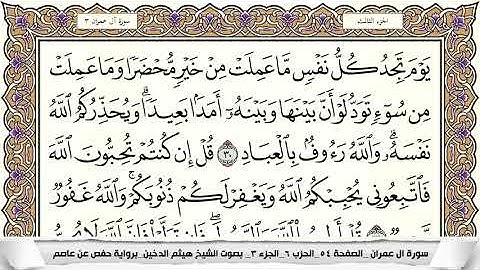 الجزء الثالث
سورة آل عمران ٣
يَوْمَ تَجِدُ كُلُّ نَفْسٍ مَّا عَمِلَتْ مِنْ خَيْرٍ مُّحْضَرًا وَمَا عَمِلَتْ
مِن سُوٓءٍ تَوَدُّ لَوْ أَنَّ بَيْنَهَا وَبَيْنَهُۥٓ أَمَدًۢا بَعِيدًا ۗ وَيُحَذِّرُكُمُ ٱللَّهُ
نَفْسَهُۥ ۗ وَٱللَّهُ رَءُوفٌۢ بِٱلْعِبَادِ ٣٠ قُلْ إِن كُنتُمْ تُحِبُّونَ ٱللَّهَ
فَٱتَّبِعُونِى يُحْبِبْكُمُ ٱللَّهُ وَيَغْفِرْ لَكُمْ ذُنُوبَكُمْ ۗ وَٱللَّهُ غَفُورٌ
سورة ال عمران _الصفحة ٥٤ _الحزب ٦_ الجزء ٣_ بصوت الشيخ هيثم الدخين_ برواية حفص عن عاصم